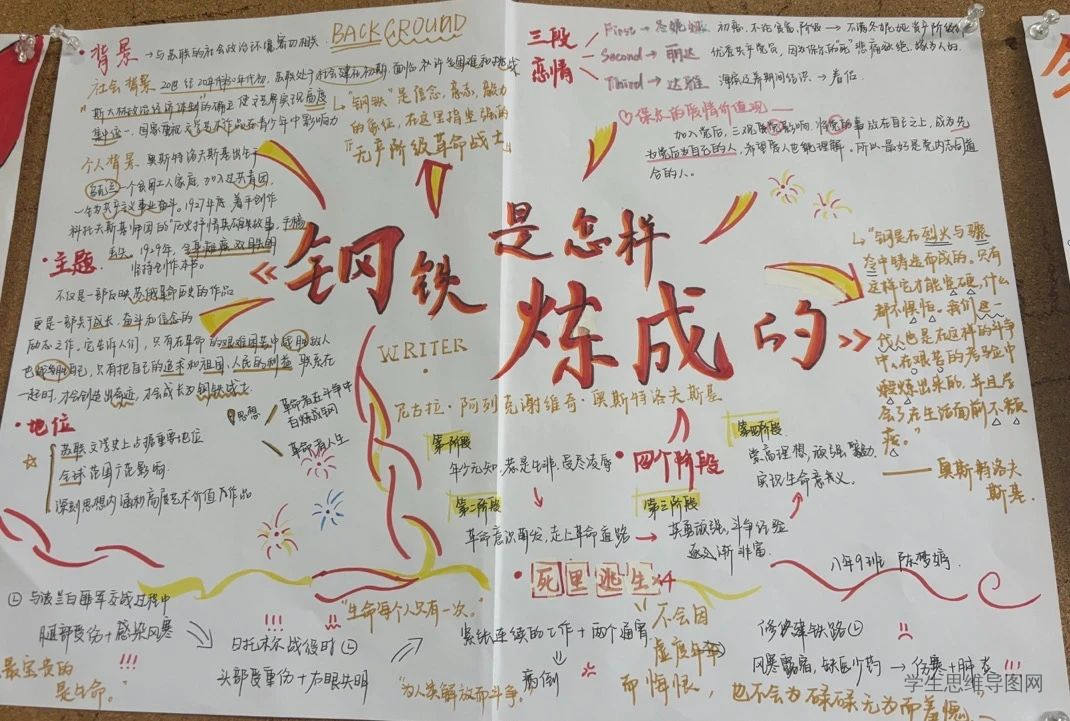 背景 → 与苏联的社会政治环境密切相关.
BACKGROUND
社会背景 20世纪20年代初30年代初, 苏联处于社会建社初期, 面临着许多困难和挑战
"斯大林政治经济体制"的确立 使文艺界实现高度
集中统一, 国家重视文学艺术作品在青少年中影响力
"钢铁"是信念, 意志, 毅力
的象征, 在这里指坚强的
『无产阶级革命战士』
个人背景 奥斯特洛夫斯基出生于
乌克兰一个贫困工人家庭, 加入过共青团,
一生为共产主义事业奋斗. 1927年底 着手创作
科托夫斯基师团的"历史抒情英雄故事, 手稿
丢失. 1929年, 全身瘫痪双目失明
坚持创作本书.
三段恋情
First → 冬妮娅 初恋, 不论贫富, 阶级 → 不满冬妮娅资产阶级作
Second → 丽达 优质共产党员, 因为保尔的死 悲痛欲绝, 嫁为人妇.
Third → 达雅 海滨疗养期间结识 → 眷侣
♡保尔的爱情价值观
加入党后, 三观受党影响, 将党的事放在自己之上, 成为先
为党后为自己的人, 希望爱人也能理解. 所以最好是党内志同道
合的人.
《钢铁是怎样炼成的》
WRITER
尼古拉·阿列克谢维奇·奥斯特洛夫斯基
"钢是在烈火与骤
冷中铸造而成的. 只有
这样它才能坚硬, 什么
都不惧怕. 我们这一
代人也是在这样的斗争
中、在艰苦的考验中
锻炼出来的, 并且学
会了在生活面前不颓
废."
—— 奥斯特洛夫
斯基.
·主题
不仅是一部反映苏维埃革命历史的作品
更是一部关于成长、奋斗和信念的
励志之作. 它告诉人们, 只有在革命的艰难困苦中战胜敌人
也战胜自己, 只有把自己的追求和祖国、人民的利益 联系在
一起时, 才会创造出奇迹, 才会成长为钢铁战士.
思想
革命者在斗争中
百炼成钢
革命者人生
·地位
苏联文学史上占据重要地位
全球范围广泛影响.
深刻思想内涵和高度艺术价值及作品
·四个阶段
第一阶段
年少无知, 若是生非, 受尽凌辱
第二阶段
革命意识萌发, 走上革命道路
第三阶段
英勇顽强, 斗争经验
逐渐非富
第四阶段
崇高理想, 顽强, 毅力.
实现生命意义.
八年9班 陈梦婷
·死里逃生 ×4
① 与波兰白匪军交战过程中
腿部受伤+感染风寒
!!!
日托米尔战役时
头部受重伤+右眼失明
!!!
紧张连续的工作+两个通宵
病倒
修建铁路
风寒露宿, 缺医少药 → 伤寒+肺炎 !!!
最宝贵的
是生命."
"生命每个人只有一次."
"为人类解放而斗争."
不会因
虚度年华
而悔恨,
也不会为碌碌无为而羞愧.
学生思维导图网